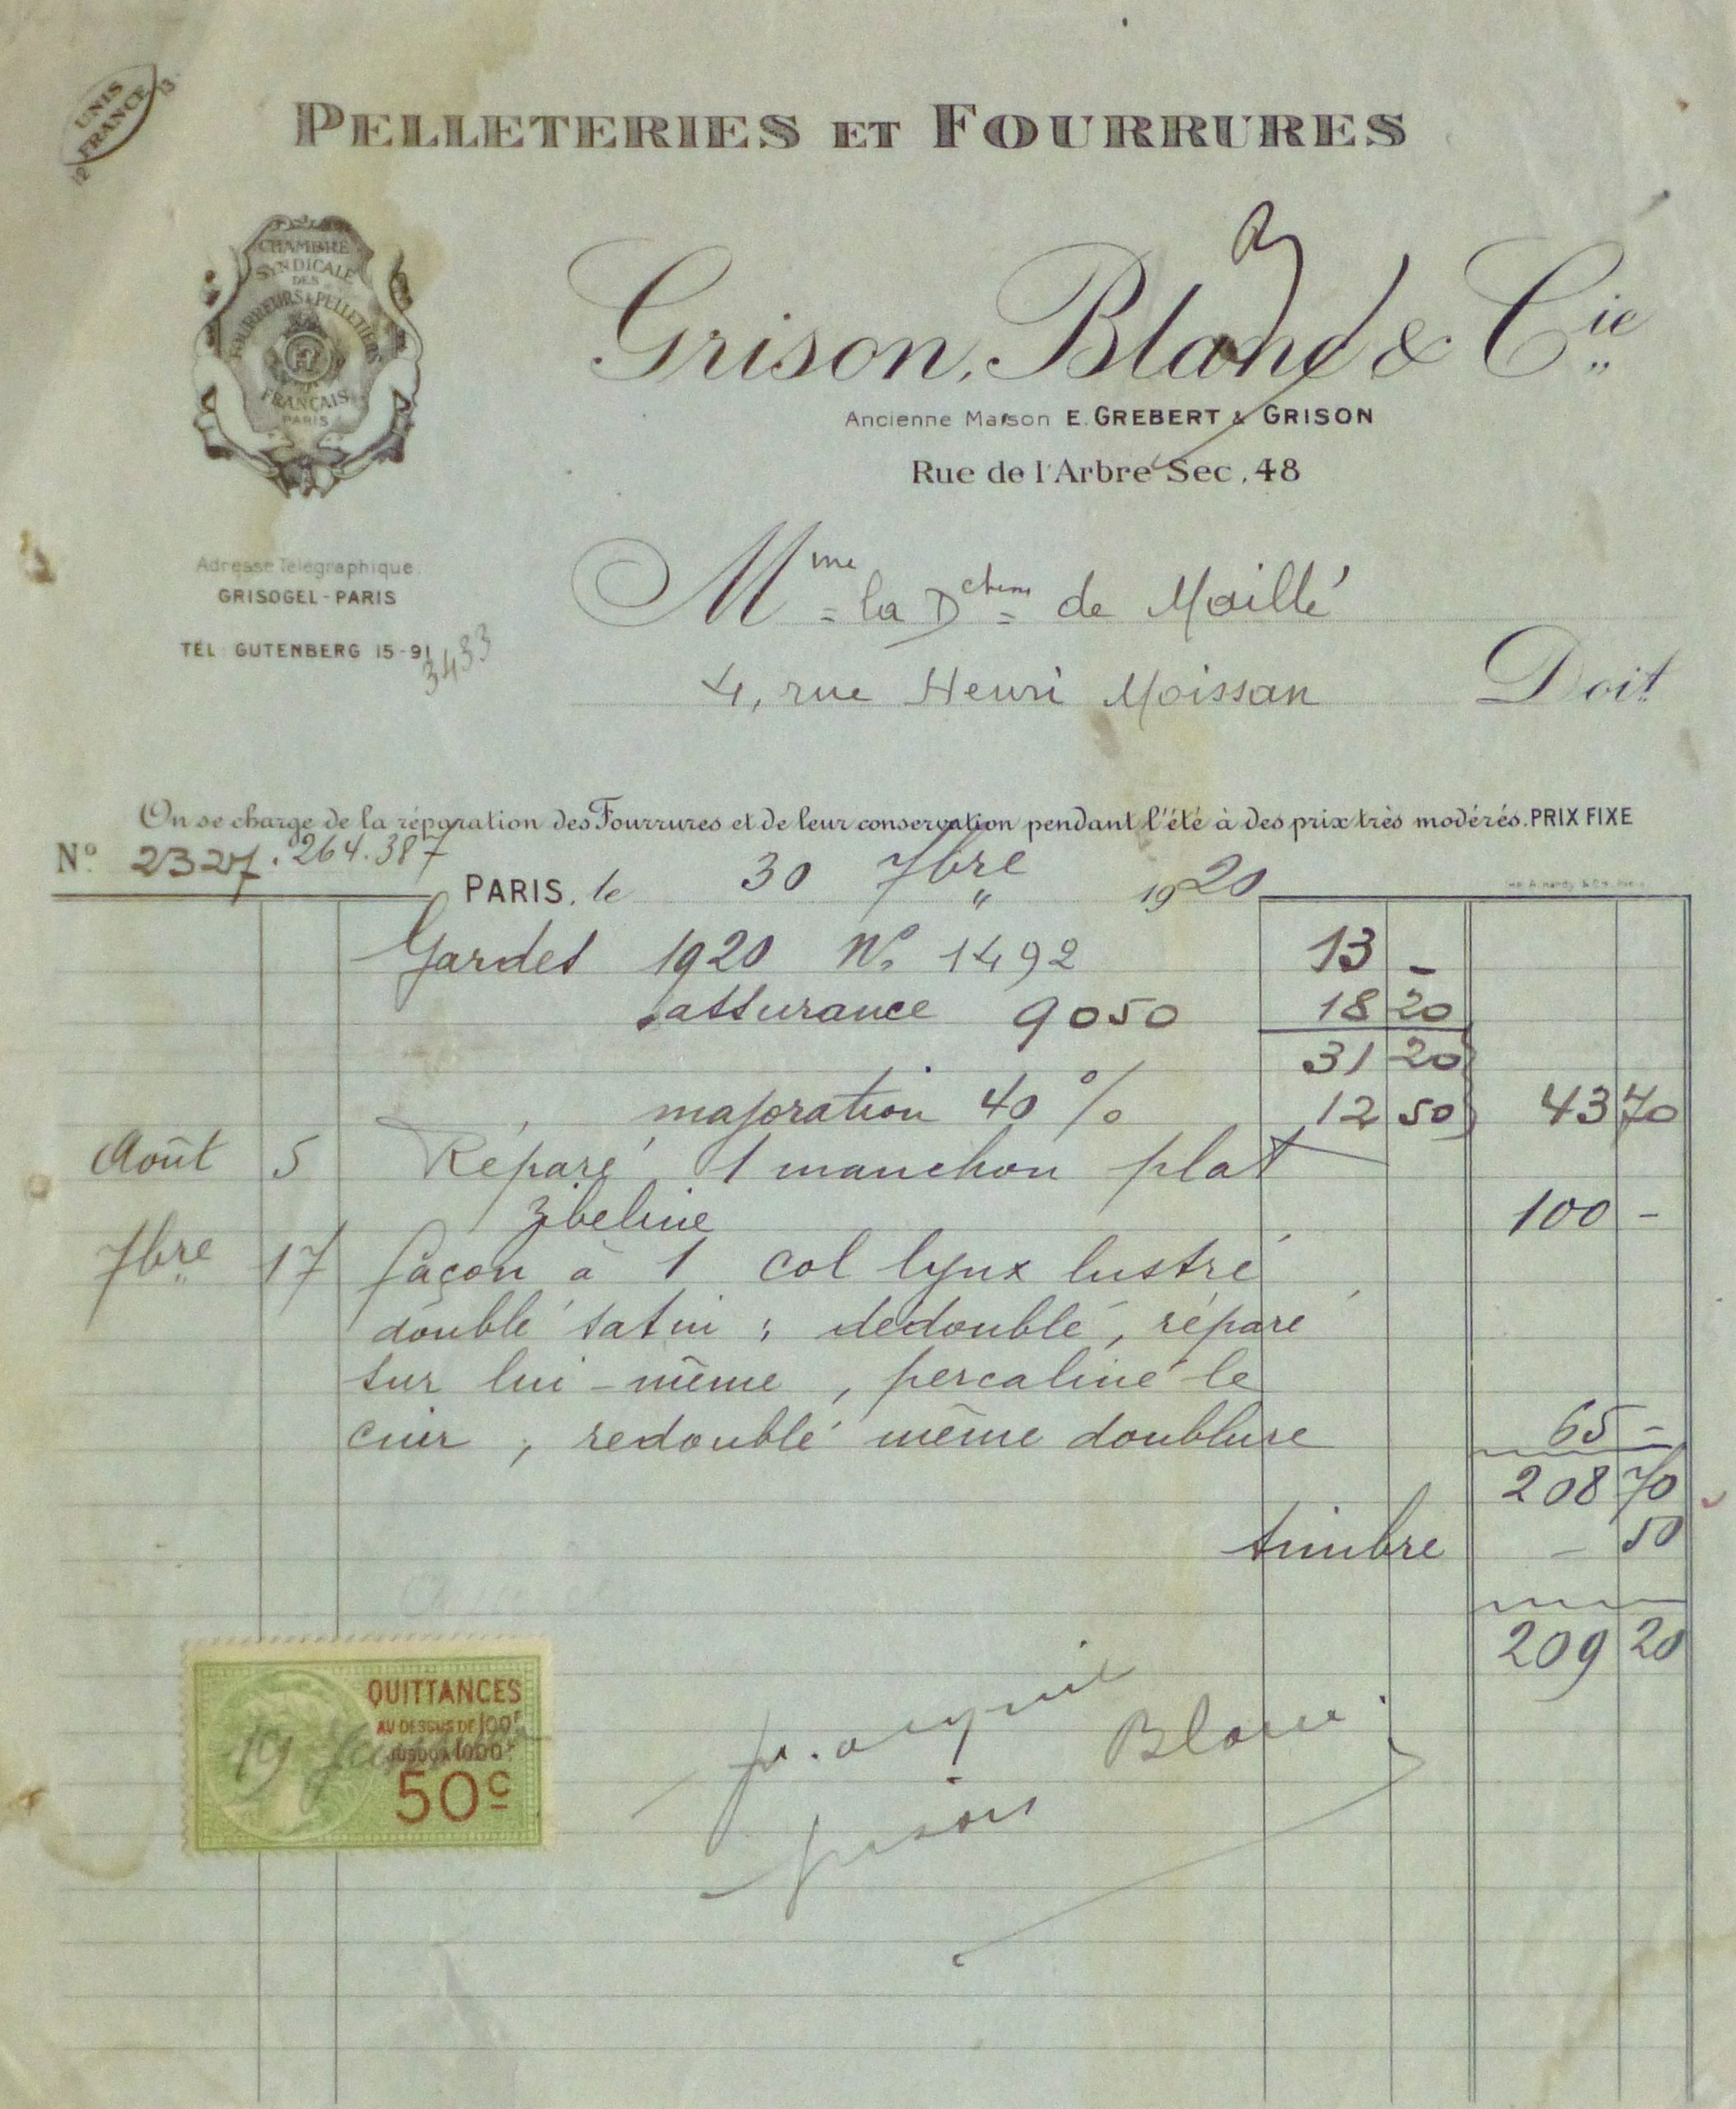 UNIS
FRANCE
PELLETERIES ET FOURRURES
CHAMBRE
SYNDICALE
DES
FOURREURS & PELLETIERS
FRANÇAIS
PARIS
Grison, Blanc & Cie
Ancienne Maison E. GREBERT & GRISON
Rue de l'Arbre Sec, 48
Adresse Télégraphique.
GRISOGEL-PARIS
TEL GUTENBERG 15-91
3433
Mme la Dchesse de Maillé
4, rue Henri Moissan Doit
On se charge de la réparation des Fourrures et de leur conservation pendant l'été à des prix très modérés. PRIX FIXE
No 2327. 264.387
PARIS, le 30 7bre 1920
Gardes 1920 No 1492 13 -
assurance 9050 18 20
31 20
majoration 40 % 12 50 43 70
Août 5 Réparé 1 manchon plat
zibeline 100 -
7bre 17 façon à 1 col lynx lustré
doublé satin ; dédoublé, réparé
sur lui-même, percaliné le
cuir, redoublé même doublure 65 -
208 70
timbre - 50
209 20
QUITTANCES
AU DESSUS DE 100F
JUSQU'A 1000F
50c
19
pr. acquit
Grison Blanc